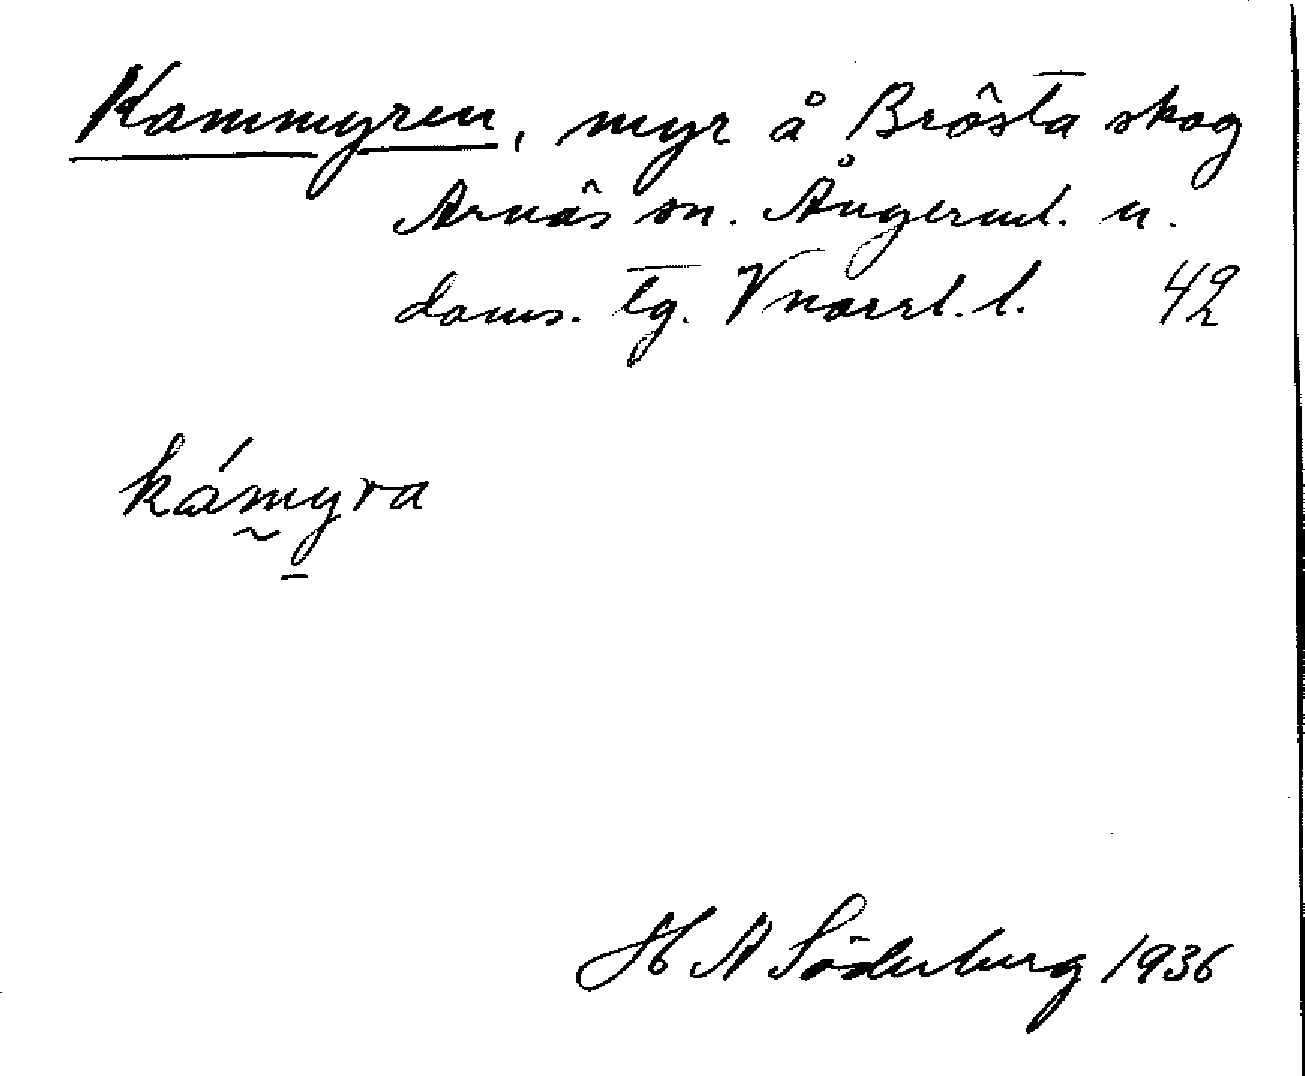 Kammyren, myr å Brösta skog
Arnäs sn. Ångerml. n.
doms. tg. Vnorrl. l. 42
kámyra
H A Söderberg 1936